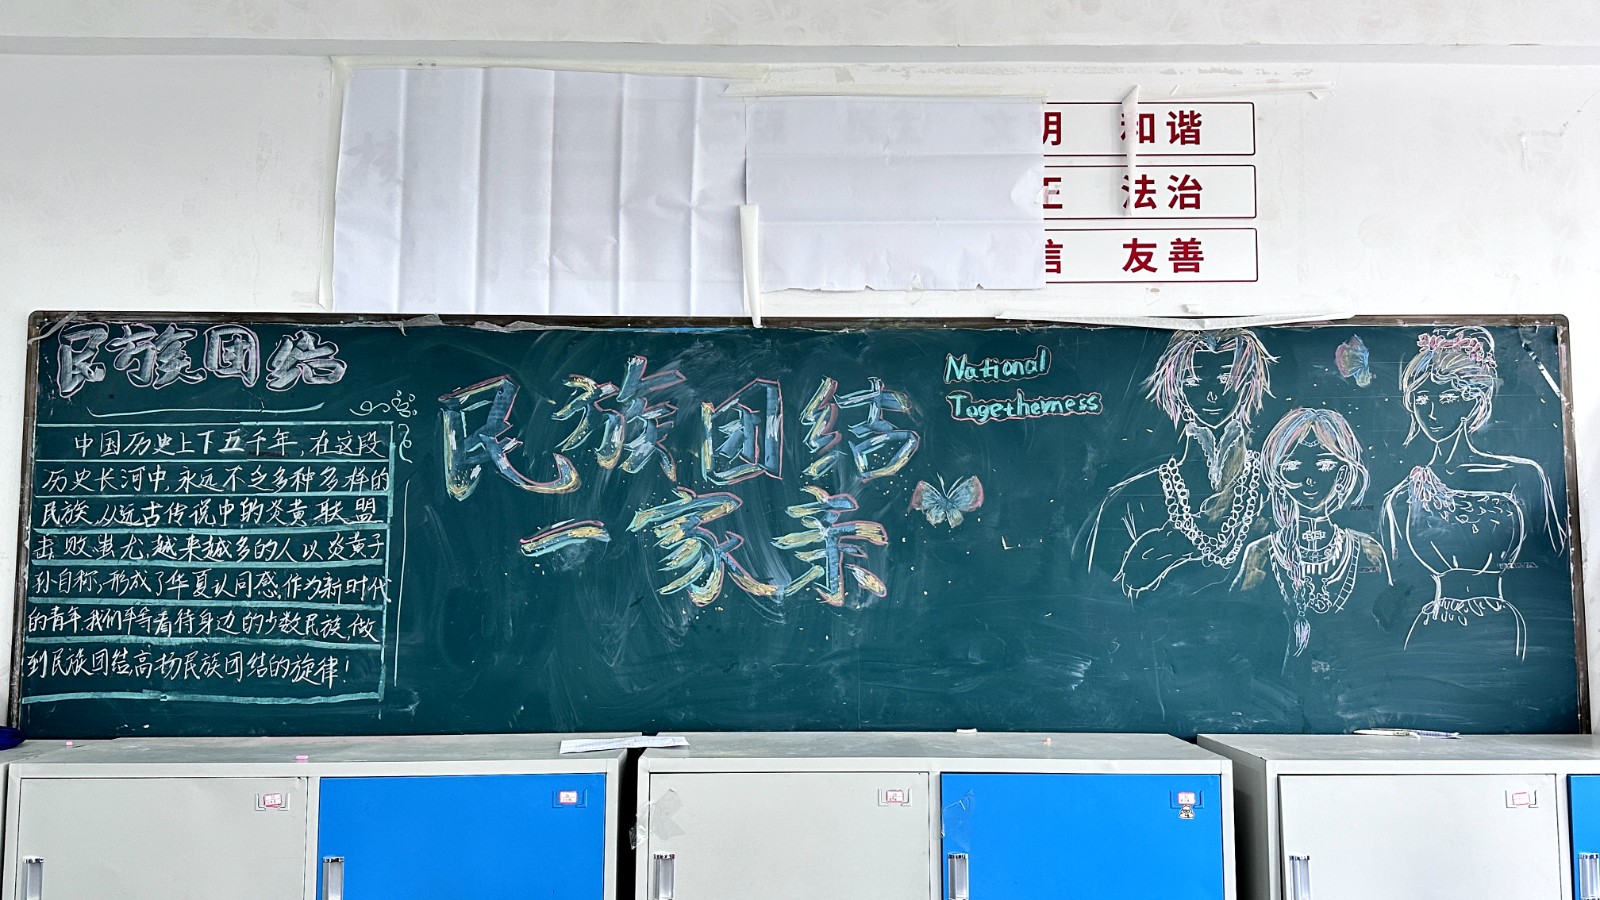 明 和谐
正 法治
信 友善
民族团结
中国历史上下五千年,在这段
历史长河中,永远不乏多种多样的
民族,从远古传说中的炎黄联盟
击败蚩尤,越来越多的人以炎黄子
孙自称,形成了华夏认同感,作为新时代
的青年我们平等看待身边的少数民族,做
到民族团结高扬民族团结的旋律!
民族团结
一家亲
National
Togetherness